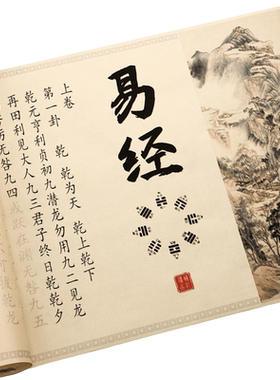 易经
上卷
第一卦 乾 乾为天 乾上乾下
乾元亨利贞初九潜龙勿用九二见龙
再田利见大人九三君子终日乾乾夕
厉无咎九四或跃在渊无咎九五